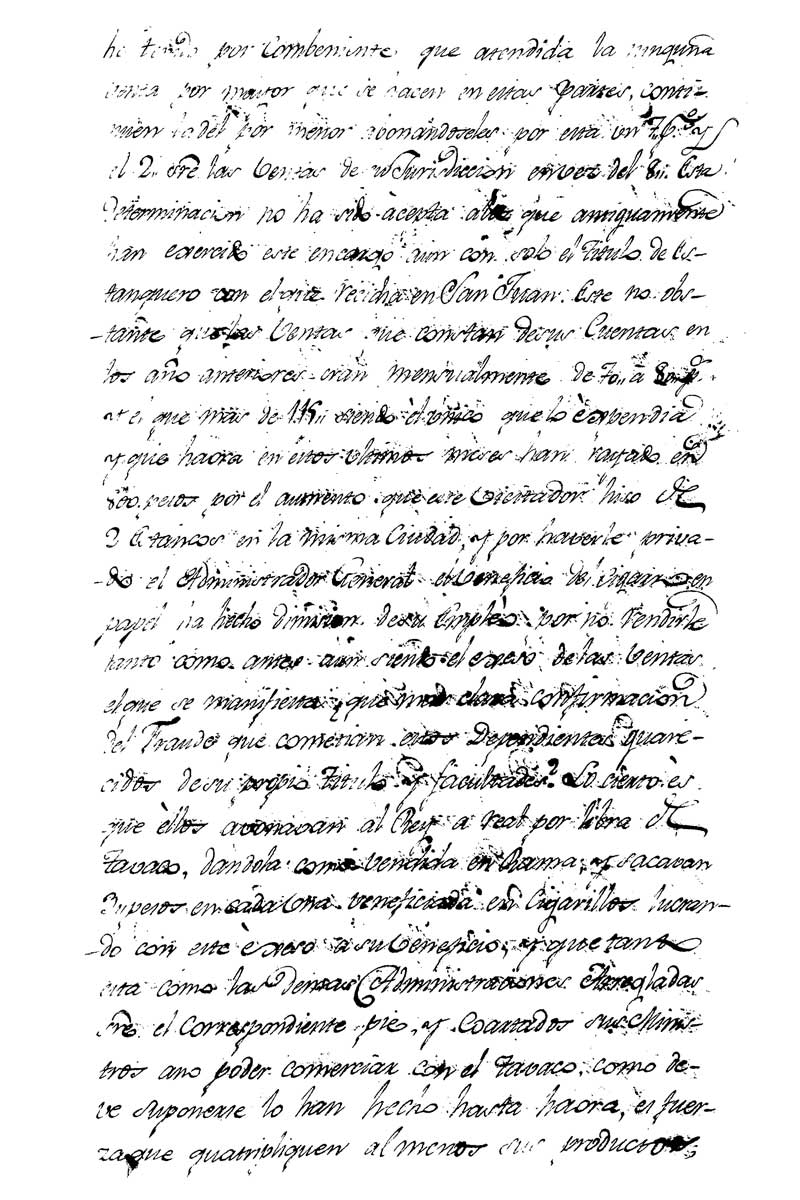 ha tenido por Combeniente que atendida la ninguna
venta por mayor que se hacen en estas partes, conti-
nuen la del por menor abonandoseles por esta un 7. 6. y
el 2.. sre las Ventas de su Jurisdiccion en vez del 8.. Esta
Determinacion no ha sido àcepta al que antiguamente
han exercido este encargo aun con solo el Titulo de Es-
tanquero con el que recidia en San Juan. Este no obs-
tante que las Ventas que constan de sus Cuentas en
los año anteriores eran mensualmente de 70.. a 80 p.s
y el que mas de 115.. siendo èl unico que lo èxpendia
y que haora en estos ultimos meses han rayado en
800. pesos por el aumento que este Vicitador hiso de
3 Estancos en la misma Ciudad, y por haverle priva-
do el Administrador General el beneficio del Cigarro en
papel ha hecho dimision de su Empleo por no rendirle
tanto como antes aun siendo el exceso de las Ventas
el que se manifiesta ¿que mas clara confirmacion
del Fraude que cometian estos Dependientes Guare-
cidos de su propio Titulo y facultades? Lo cierto ès
que èllos avonavan al Rey a real por libra de
Tavaco, dandola como vendida en Rama, y sacavan
3 y pesos en cada Una beneficiada en Cigarillos lucran-
do con este èxceso a su beneficio, y que tanto
esta como las demas Administraciones Arregladas
sre el Correspondiente pie, y Coartados sus Minis-
tros ano poder comerciar con el tavaco, como de-
ve suponerse lo han hecho hasta haora, es fuer-
za que quatripliquen al menos sus productos;